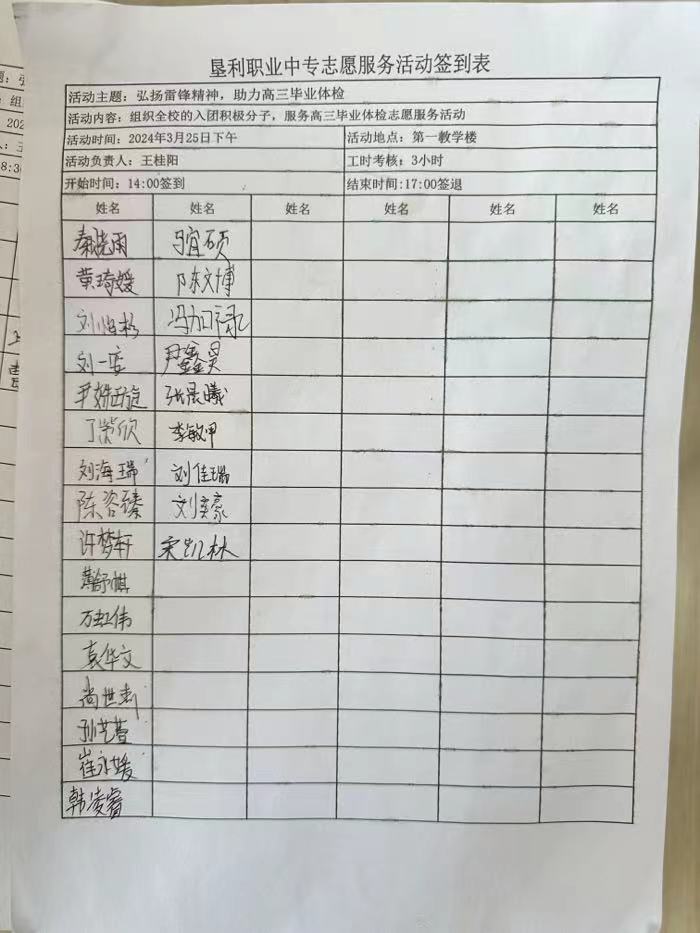 垦利职业中专志愿服务活动签到表
活动主题：弘扬雷锋精神，助力高三毕业体检
活动内容：组织全校的入团积极分子，服务高三毕业体检志愿服务活动
活动时间：2024年3月25日下午 活动地点：第一教学楼
活动负责人：王桂阳 工时考核：3小时
开始时间：14:00签到 结束时间:17:00签退
姓名 姓名 姓名 姓名 姓名 姓名
秦晓雨 马宜硕
黄琦媛 陈文博
冯加禄
刘一 尹鑫昊
张晨曦
丁紫欣 李敏甲
刘海瑞 刘佳瑞
陈咨臻 刘奕豪
许梦轩 宋凯林
薄舒祺
万虹伟
袁华文
尚世
孙艺萱
崔永媛
韩凌睿